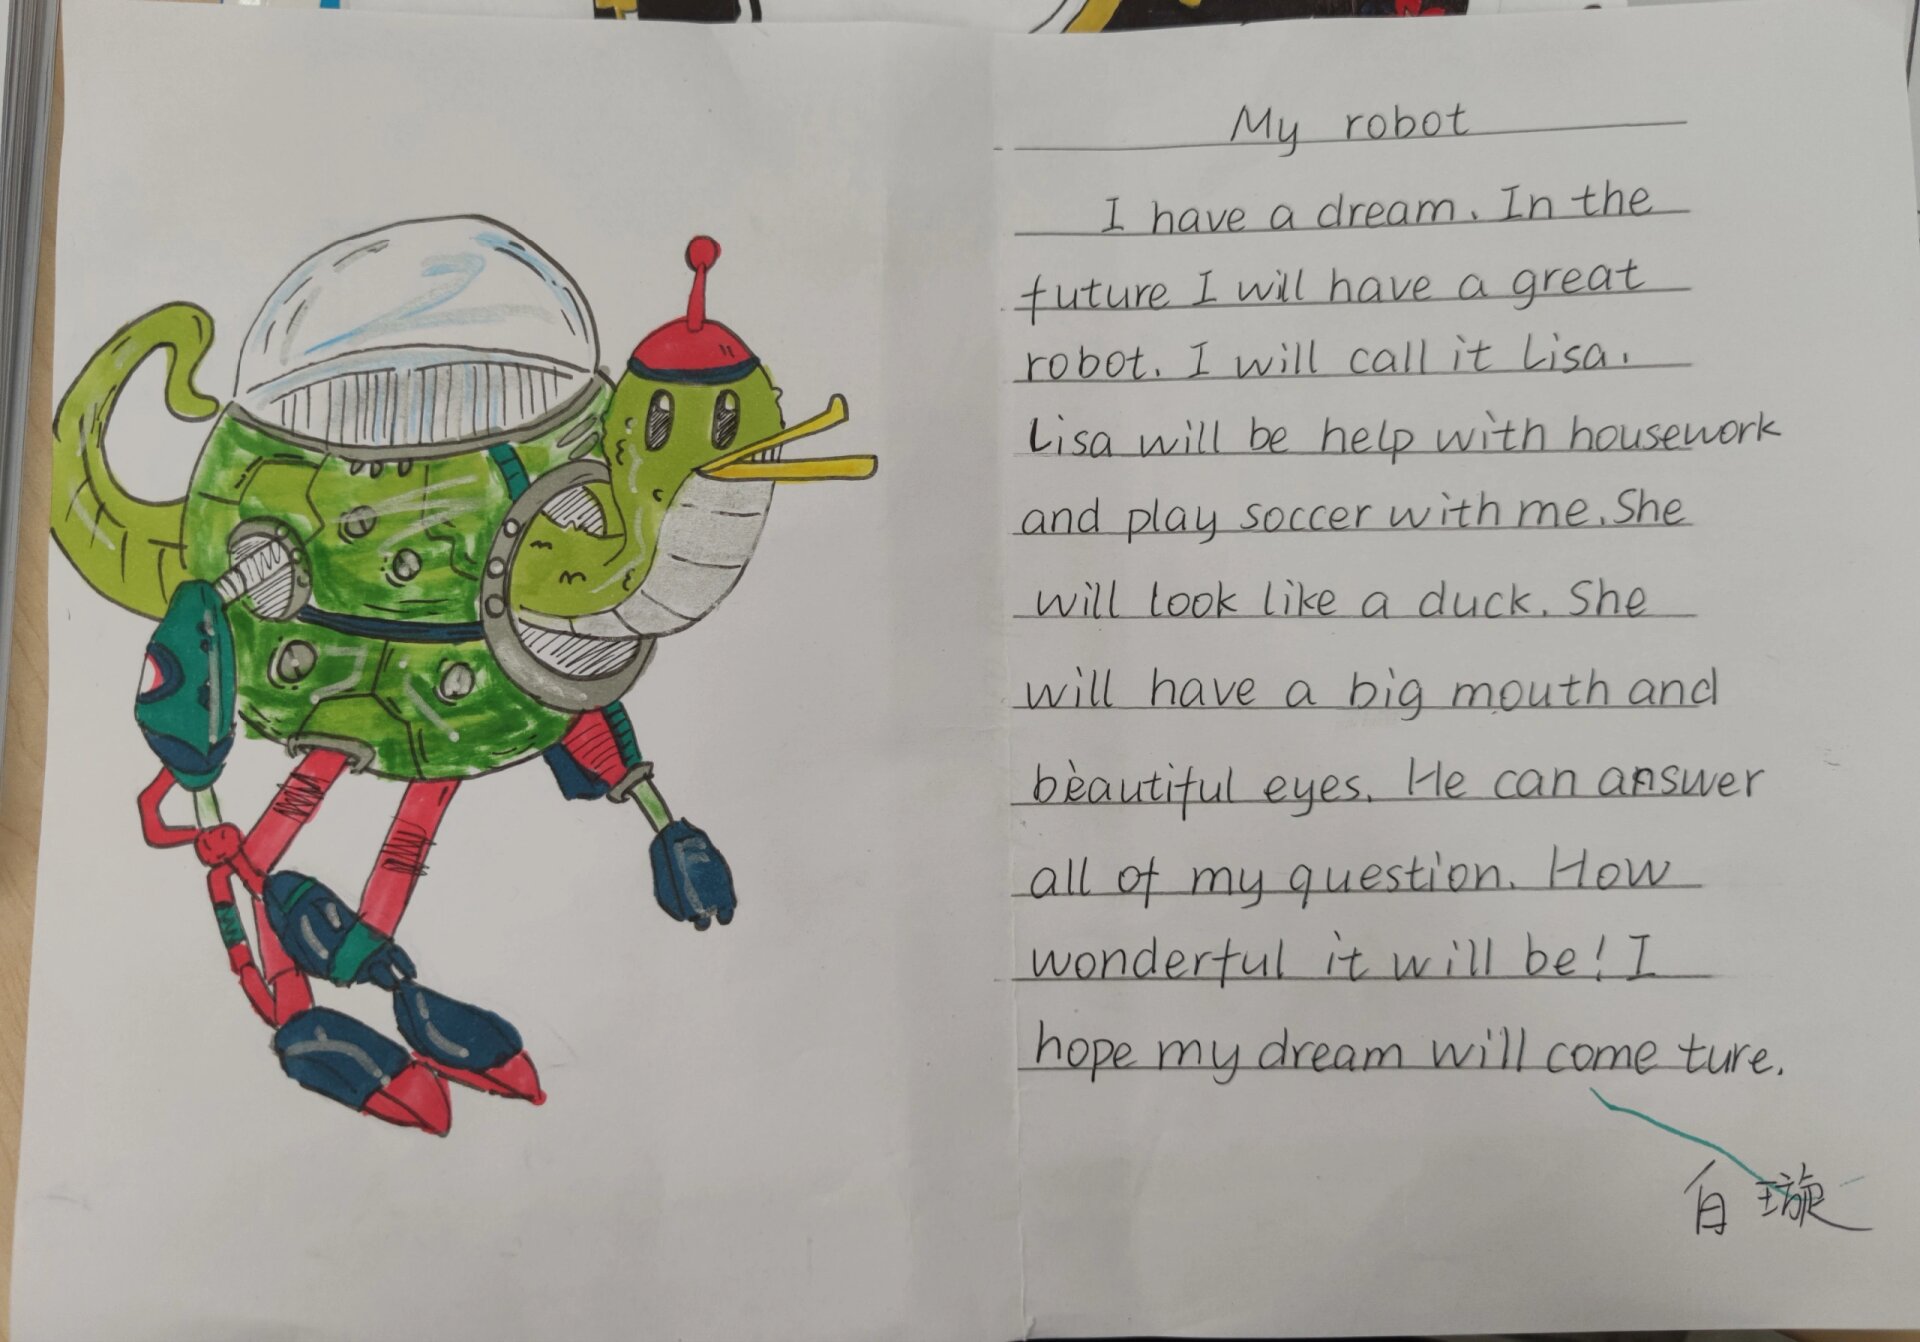 My robot
I have a dream. In the
future I will have a great
robot. I will call it Lisa.
Lisa will be help with housework
and play soccer with me. She
will look like a duck. She
will have a big mouth and
beautiful eyes. He can answer
all of my question. How
wonderful it will be! I
hope my dream will come ture.
白璇